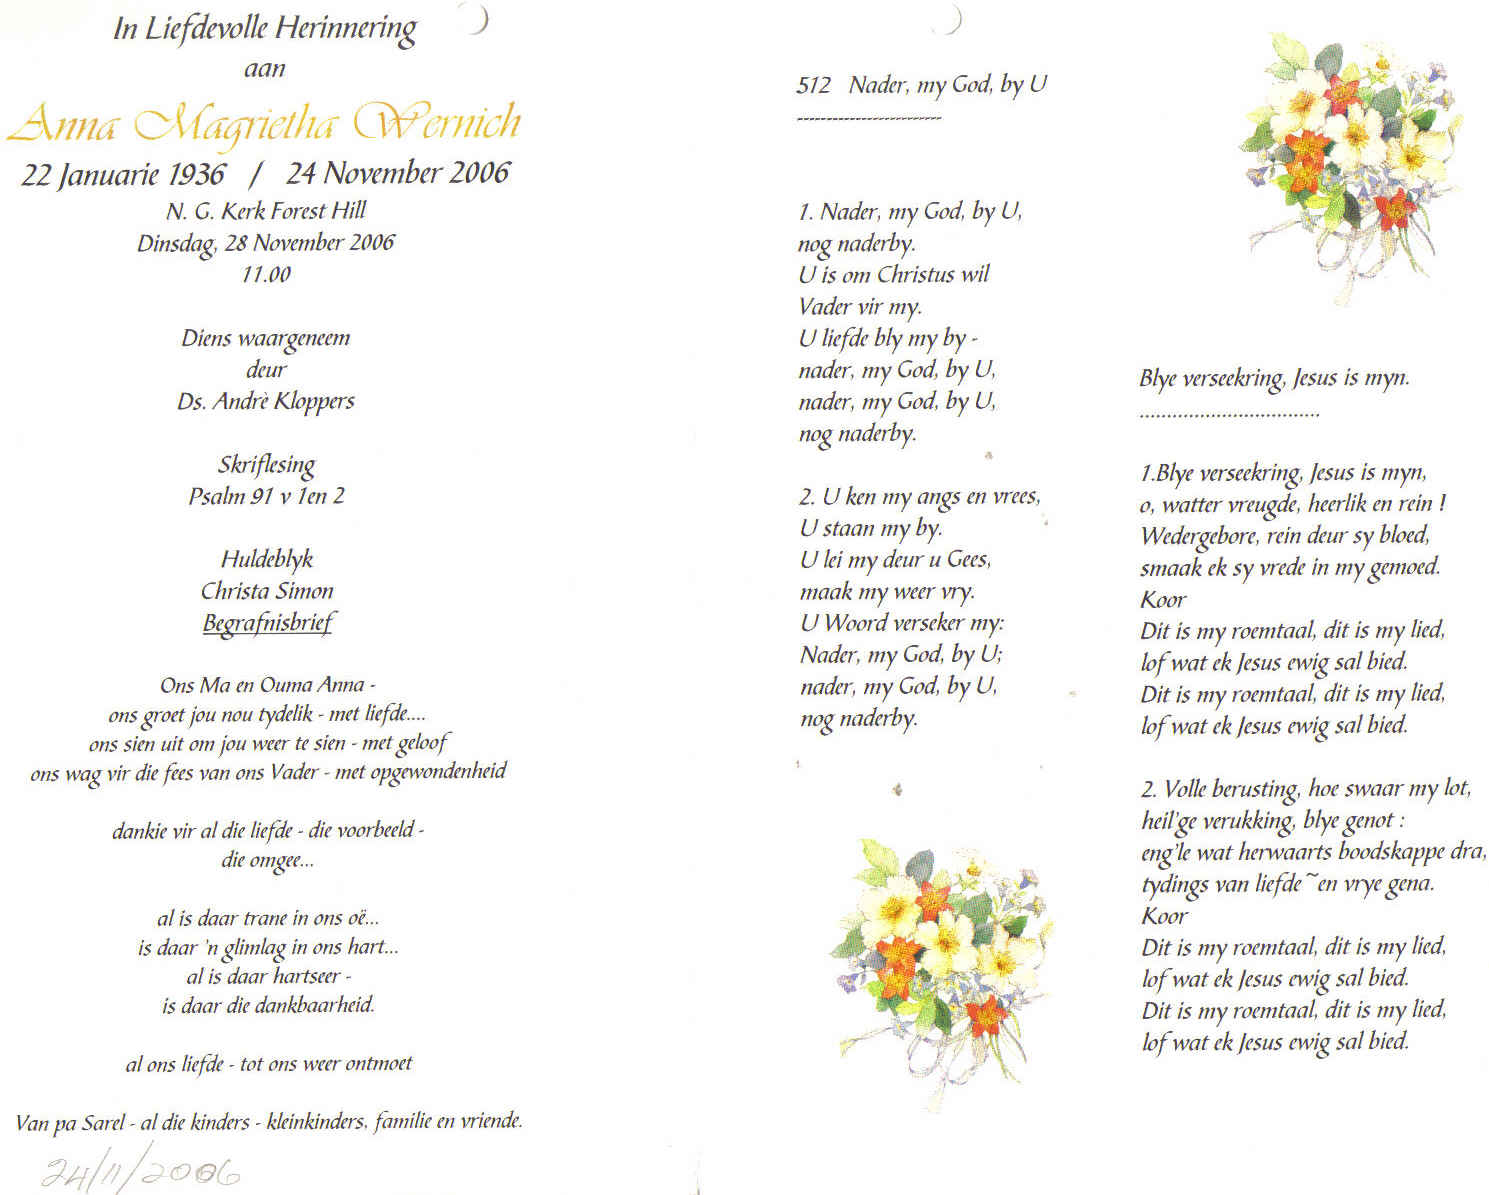 In Liefdevolle Herinnering
aan
Anna Magrietha Wernich
22 Januarie 1936 / 24 November 2006
N. G. Kerk Forest Hill
Dinsdag, 28 November 2006
11.00
Diens waargeneem
deur
Ds. Andrè Kloppers
Skriflesing
Psalm 91 v 1en 2
Huldeblyk
Christa Simon
Begrafnisbrief
Ons Ma en Ouma Anna -
ons groet jou nou tydelik - met liefde....
ons sien uit om jou weer te sien - met geloof
ons wag vir die fees van ons Vader - met opgewondenheid
dankie vir al die liefde - die voorbeeld -
die omgee...
al is daar trane in ons oë...
is daar 'n glimlag in ons hart...
al is daar hartseer -
is daar die dankbaarheid.
al ons liefde - tot ons weer ontmoet
Van pa Sarel - al die kinders - kleinkinders, familie en vriende.
24/11/2006
512 Nader, my God, by U
-------------------------
1. Nader, my God, by U,
nog naderby.
U is om Christus wil
Vader vir my.
U liefde bly my by -
nader, my God, by U,
nader, my God, by U,
nog naderby.
2. U ken my angs en vrees,
U staan my by.
U lei my deur u Gees,
maak my weer vry.
U Woord verseker my:
Nader, my God, by U;
nader, my God, by U,
nog naderby.
Blye verseekring, Jesus is myn.
.................................
1.Blye verseekring, Jesus is myn,
o, watter vreugde, heerlik en rein !
Wedergebore, rein deur sy bloed,
smaak ek sy vrede in my gemoed.
Koor
Dit is my roemtaal, dit is my lied,
lof wat ek Jesus ewig sal bied.
Dit is my roemtaal, dit is my lied,
lof wat ek Jesus ewig sal bied.
2. Volle berusting, hoe swaar my lot,
heil'ge verukking, blye genot :
eng'le wat herwaarts boodskappe dra,
tydings van liefde ~ en vrye gena.
Koor
Dit is my roemtaal, dit is my lied,
lof wat ek Jesus ewig sal bied.
Dit is my roemtaal, dit is my lied,
lof wat ek Jesus ewig sal bied.